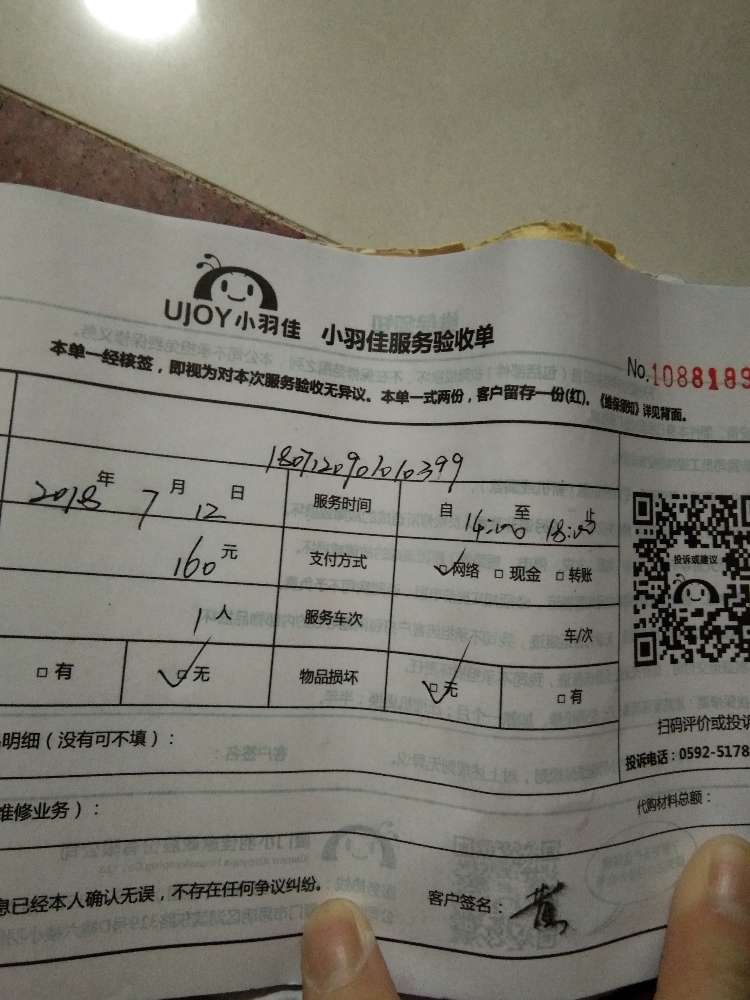 UJOY小羽佳 小羽佳服务验收单
No.1088189
本单一经核签，即视为对本次服务验收无异议。本单一式两份，客户留存一份(红)。《维保须知》详见背面。
180712090101010399
2018年7月12日 服务时间 自14:00至18:00止
160元 支付方式 网络 □现金 □转账
1人 服务车次 车/次
□有 □无 物品损坏 □无 □有
投诉或建议
扫码评价或投诉
投诉电话：0592-5178
明细（没有可不填）：
代购材料总额：
维修业务）：
息已经本人确认无误，不存在任何争议纠纷。
客户签名：